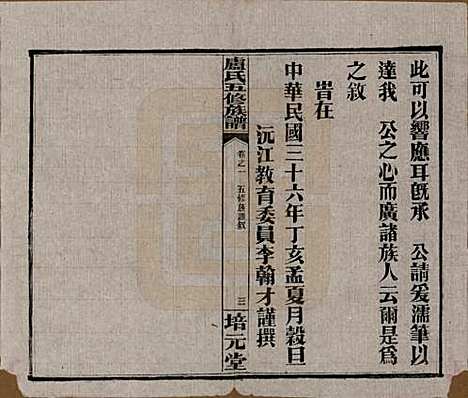 此可以響應耳旣承　公請爰濡筆以
達我　公之心而廣諸族人云爾是爲
之敘
旹在
中華民國三十六年丁亥孟夏月穀旦
沅江教育委員李翰才謹撰
盧氏五修族譜
卷之一　五修族譜敘
三
培元堂